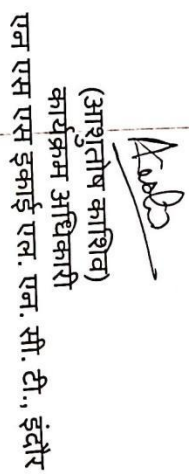 (आशुतोष काशिव)
कार्यक्रम अधिकारी
एन एस एस इकाई एल. एन. सी. टी., इंदौर